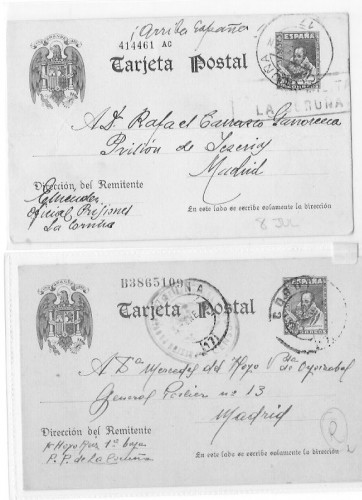 ¡Arriba España!
414461 AG
Tarjeta Postal
ESPAÑA
CORREOS
LA CORUÑA
A D. Rafael Carrasco Garrorena
Prisión de Yeserías
Madrid
Dirección del Remitente
Oficial Prisiones
La Coruña
En este lado se escribe solamente la dirección
6 JUL
B3865109
Tarjeta Postal
ESPAÑA
CORUÑA
A Dª Mercedes del Hoyo Vda de
General Pardiñas no 13
Madrid
Dirección del Remitente
1º bajo
P. P. de La Coruña
En este lado se escribe solamente la dirección